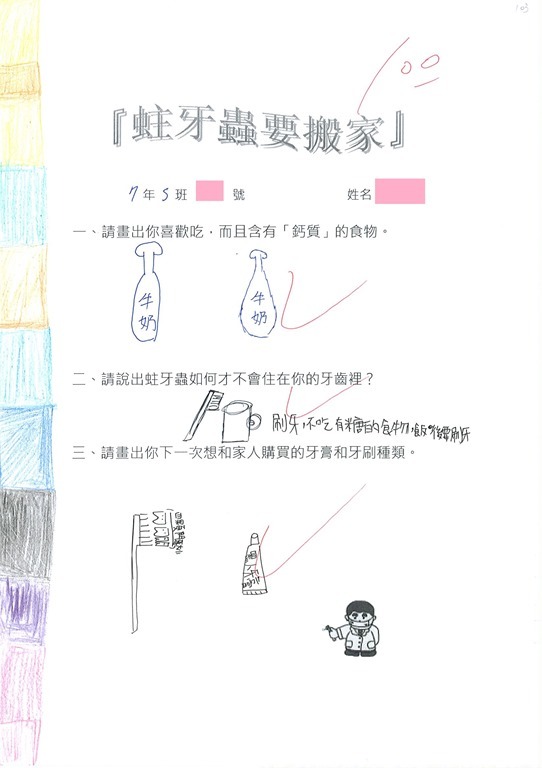 103
100
『蛀牙蟲要搬家』
7年5班 號 姓名
一、請畫出你喜歡吃,而且含有「鈣質」的食物。
牛奶 牛奶
二、請說出蛀牙蟲如何才不會住在你的牙齒裡?
刷牙,不吃有糖的食物,飯後要刷牙
三、請畫出你下一次想和家人購買的牙膏和牙刷種類。